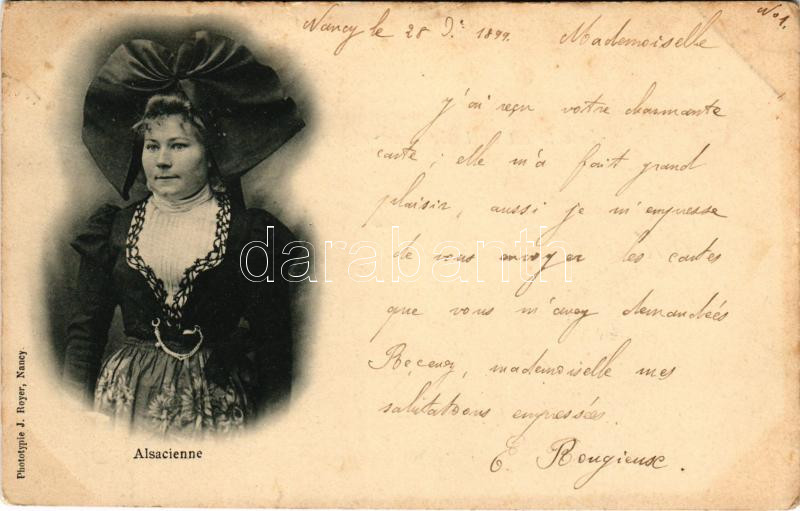 No 1.
Nancy le 28 D. 1899. Mademoiselle
J'ai reçu votre charmante
carte ; elle m'a fait grand
plaisir, aussi je m'empresse
de vous envoyer les cartes
que vous m'avez demandées
Reçevez, mademoiselle mes
salutations empressées.
E. Rougieux.
darabanth
Alsacienne
Phototypie J. Royer, Nancy.